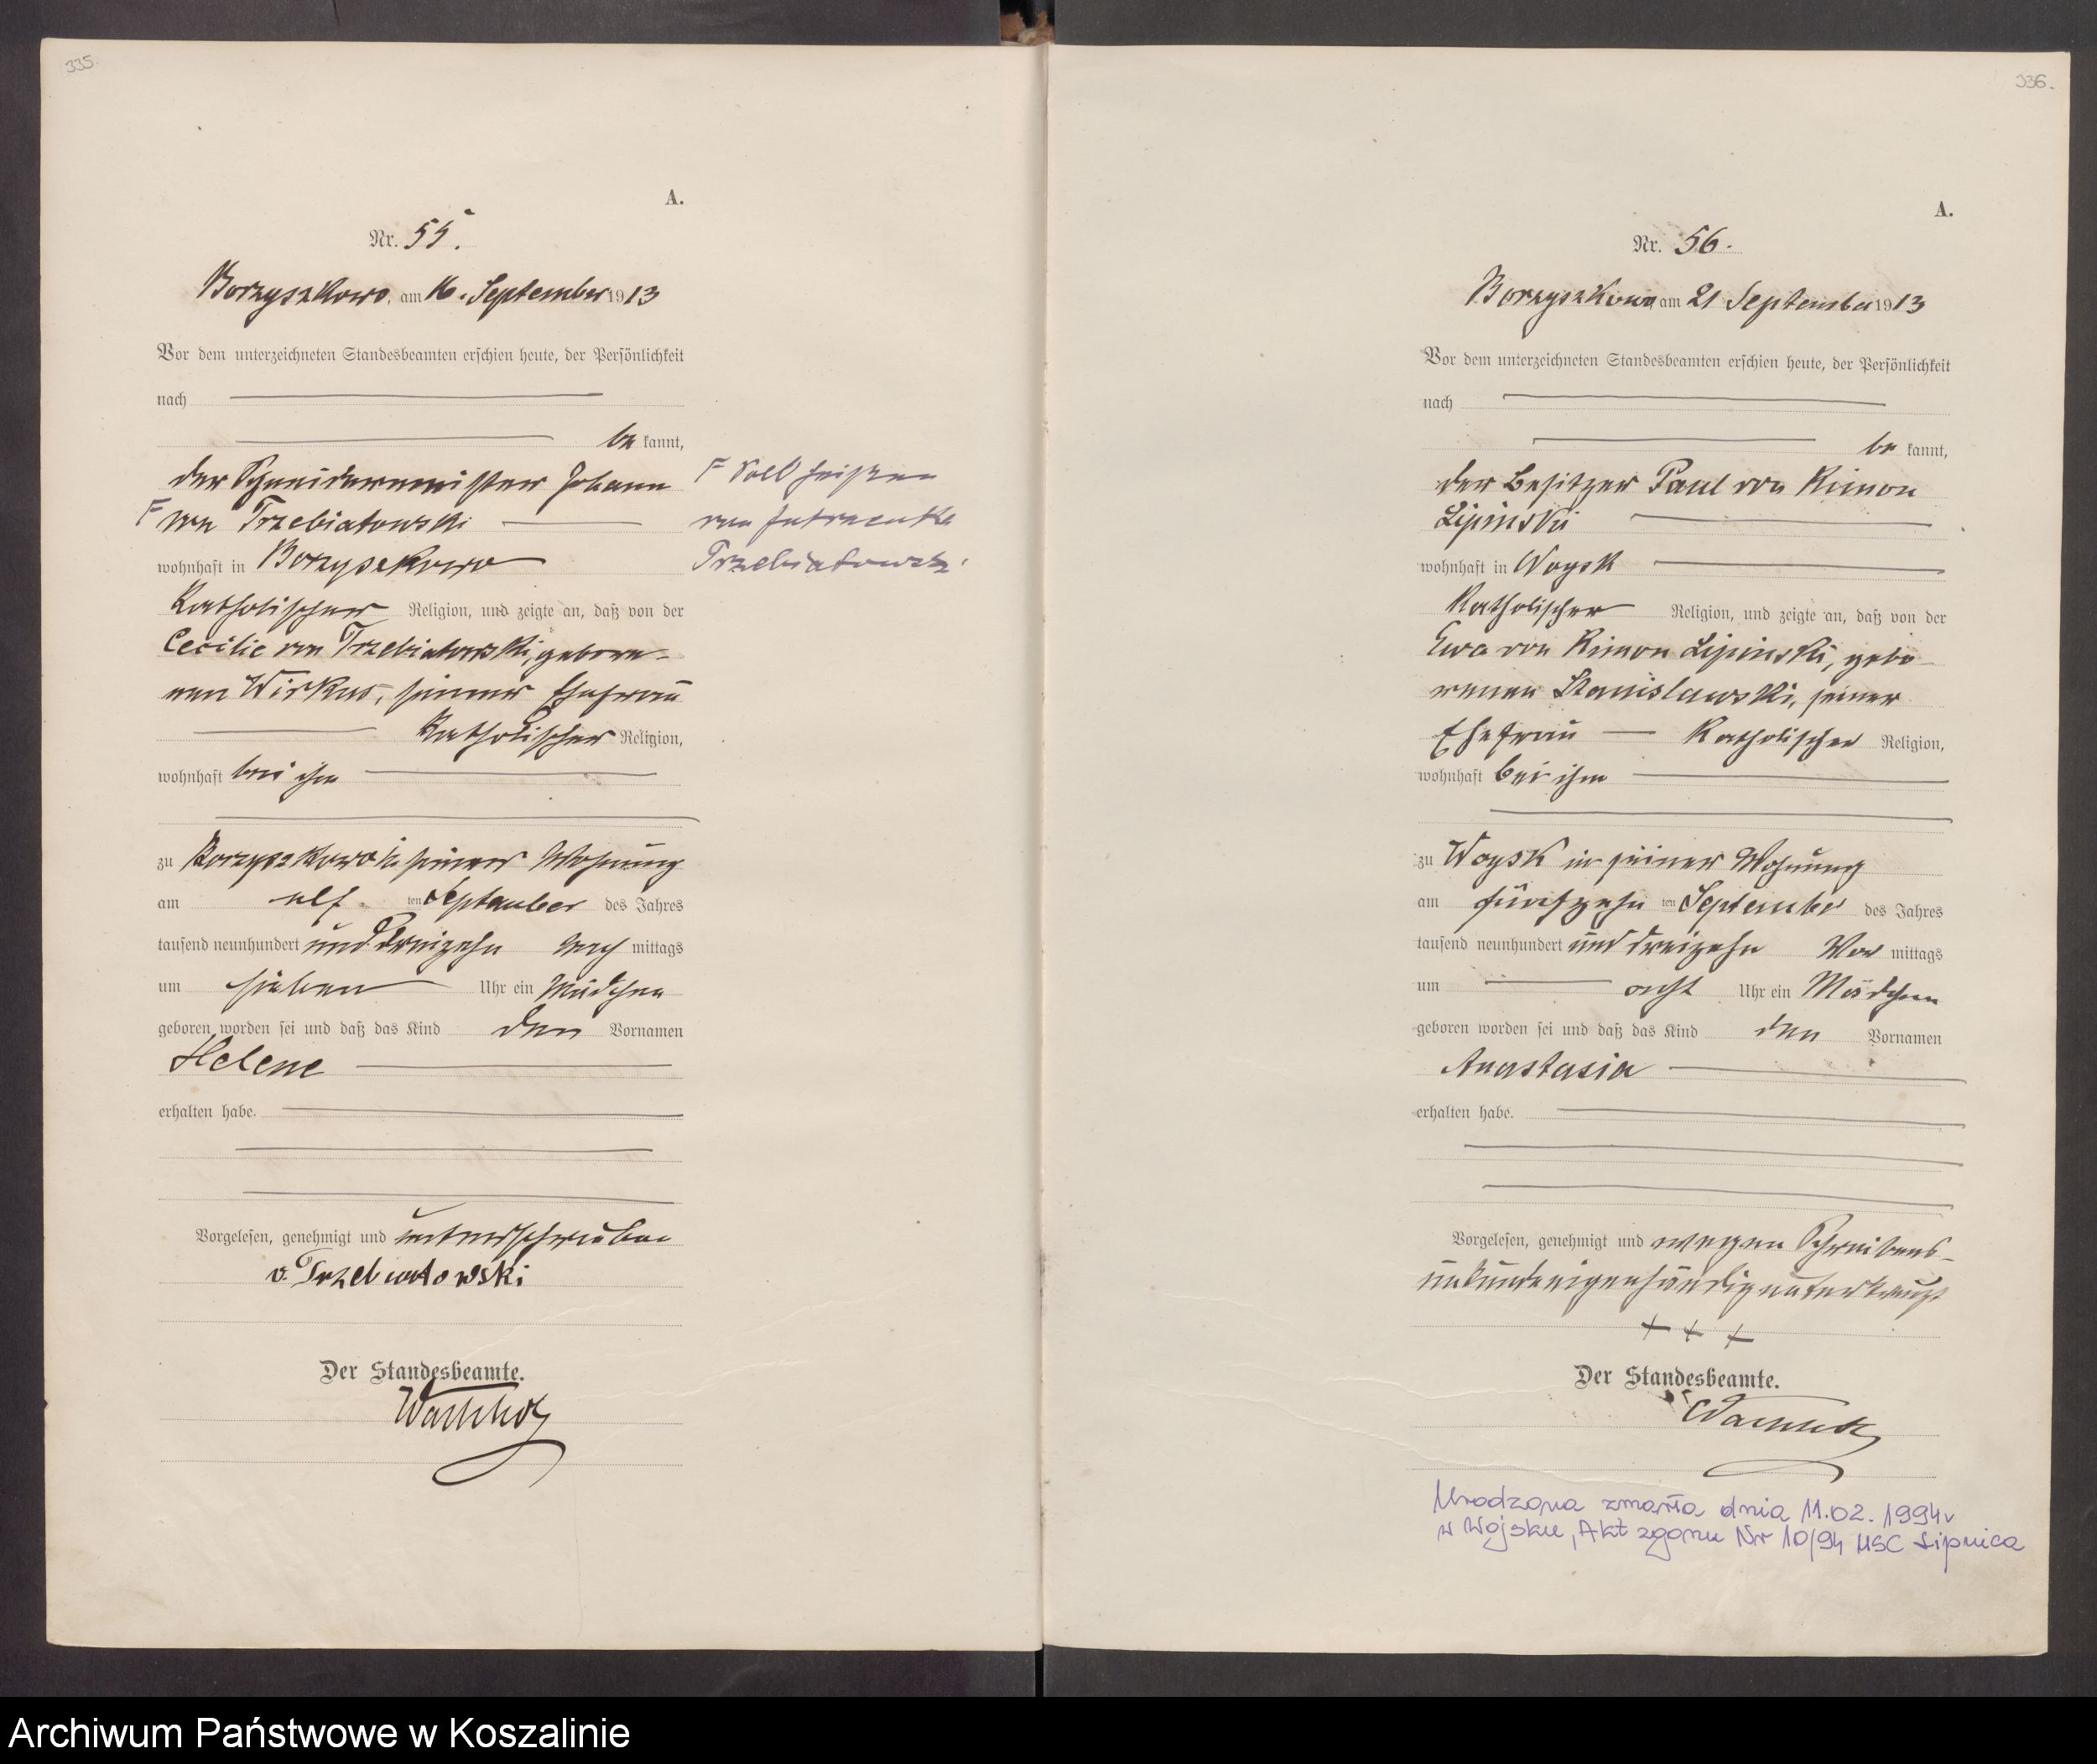 335.
A.
Nr. 55.
Borzyszkowo, am 16. September 1913
Vor dem unterzeichneten Standesbeamten erschien heute, der Persönlichkeit
nach
be kannt,
der Schneidermeister Johann
F von Trzebiatowski
wohnhaft in Borzyszkowo
Katholischer Religion, und zeigte an, daß von der
Cecilie von Trzebiatowski, gebore-
nen Wirkus, seiner Ehefrau
Katholischer Religion,
wohnhaft bei ihm
zu Borzyszkowo in seiner Wohnung
am elf ten September des Jahres
tausend neunhundert und dreizehn Nach mittags
um sieben Uhr ein Mädchen
geboren worden sei und daß das Kind den Vornamen
Helene
erhalten habe.
Vorgelesen, genehmigt und unterschrieben
v. Trzebiatowski
Der Standesbeamte.
F Soll heißen
von Jutrzenka
Trzebiatowski
336.
A.
Nr. 56.
Borzyszkowo, am 21 September 1913
Vor dem unterzeichneten Standesbeamten erschien heute, der Persönlichkeit
nach
be kannt,
der Besitzer Paul von Kimon
Lipinski
wohnhaft in Woysk
Katholischer Religion, und zeigte an, daß von der
Ewa von Kimon Lipinski, gebo-
renen Stanislawski, seiner
Ehefrau Katholischer Religion,
wohnhaft bei ihm
zu Woysk in seiner Wohnung
am fünfzehn ten September des Jahres
tausend neunhundert und dreizehn Vor mittags
um acht Uhr ein Mädchen
geboren worden sei und daß das Kind den Vornamen
Anastasia
erhalten habe.
Vorgelesen, genehmigt und wegen Schreibens-
unkunde eigenhändig unterkreuzt
+ + +
Der Standesbeamte.
Urodzona zmarła dnia 11.02.1994r
w Wojsku, Akt zgonu Nr 10/94 USC Lipnica
Archiwum Państwowe w Koszalinie